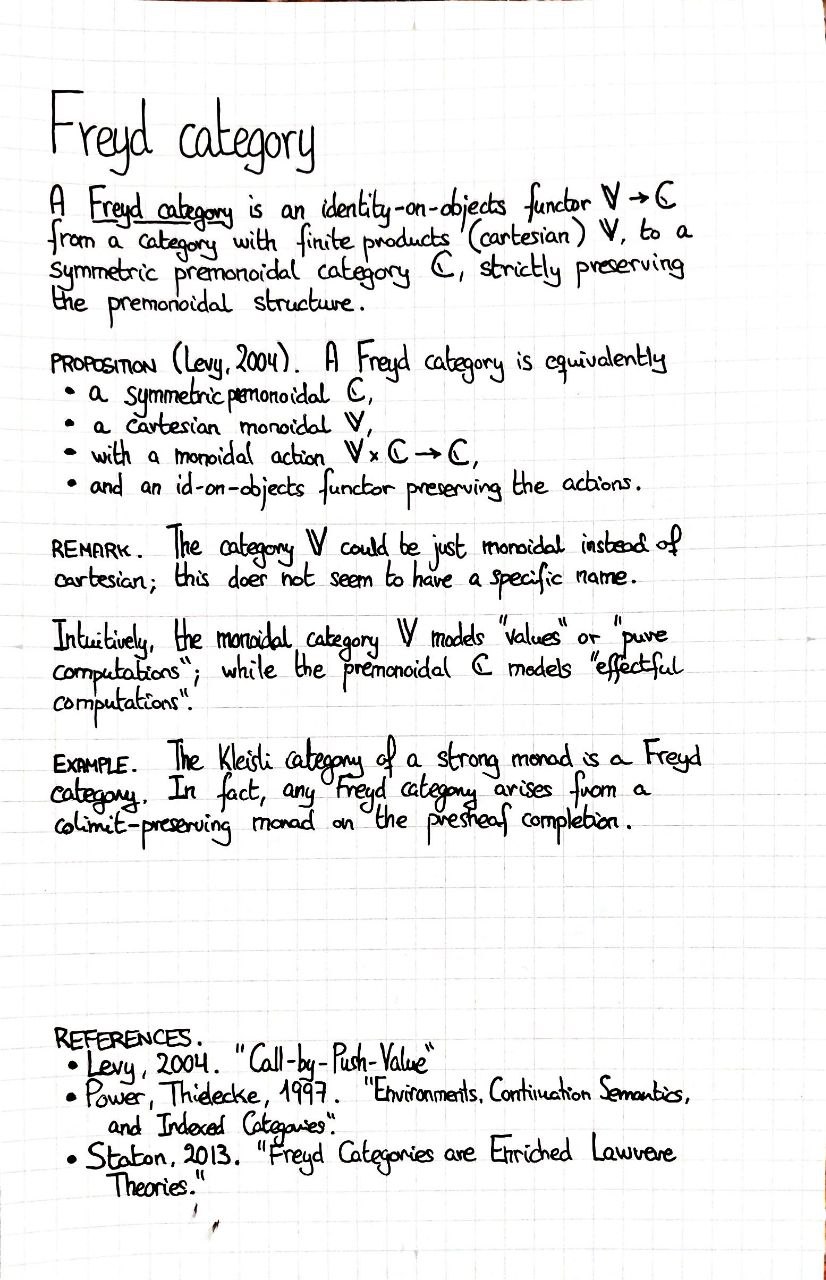 Freyd category
A Freyd category is an identity-on-objects functor 𝕍 → ℂ
from a category with finite products (cartesian) 𝕍, to a
symmetric premonoidal category ℂ, strictly preserving
the premonoidal structure.
PROPOSITION (Levy, 2004). A Freyd category is equivalently
• a symmetric premonoidal ℂ,
• a cartesian monoidal 𝕍,
• with a monoidal action 𝕍 × ℂ → ℂ,
• and an id-on-objects functor preserving the actions.
REMARK. The category 𝕍 could be just monoidal instead of
cartesian; this does not seem to have a specific name.
Intuitively, the monoidal category 𝕍 models "values" or "pure
computations"; while the premonoidal ℂ models "effectful
computations".
EXAMPLE. The Kleisli category of a strong monad is a Freyd
category. In fact, any Freyd category arises from a
colimit-preserving monad on the presheaf completion.
REFERENCES.
• Levy, 2004. "Call-by-Push-Value"
• Power, Thielecke, 1997. "Environments, Continuation Semantics,
and Indexed Categories".
• Staton, 2013. "Freyd Categories are Enriched Lawvere
Theories."